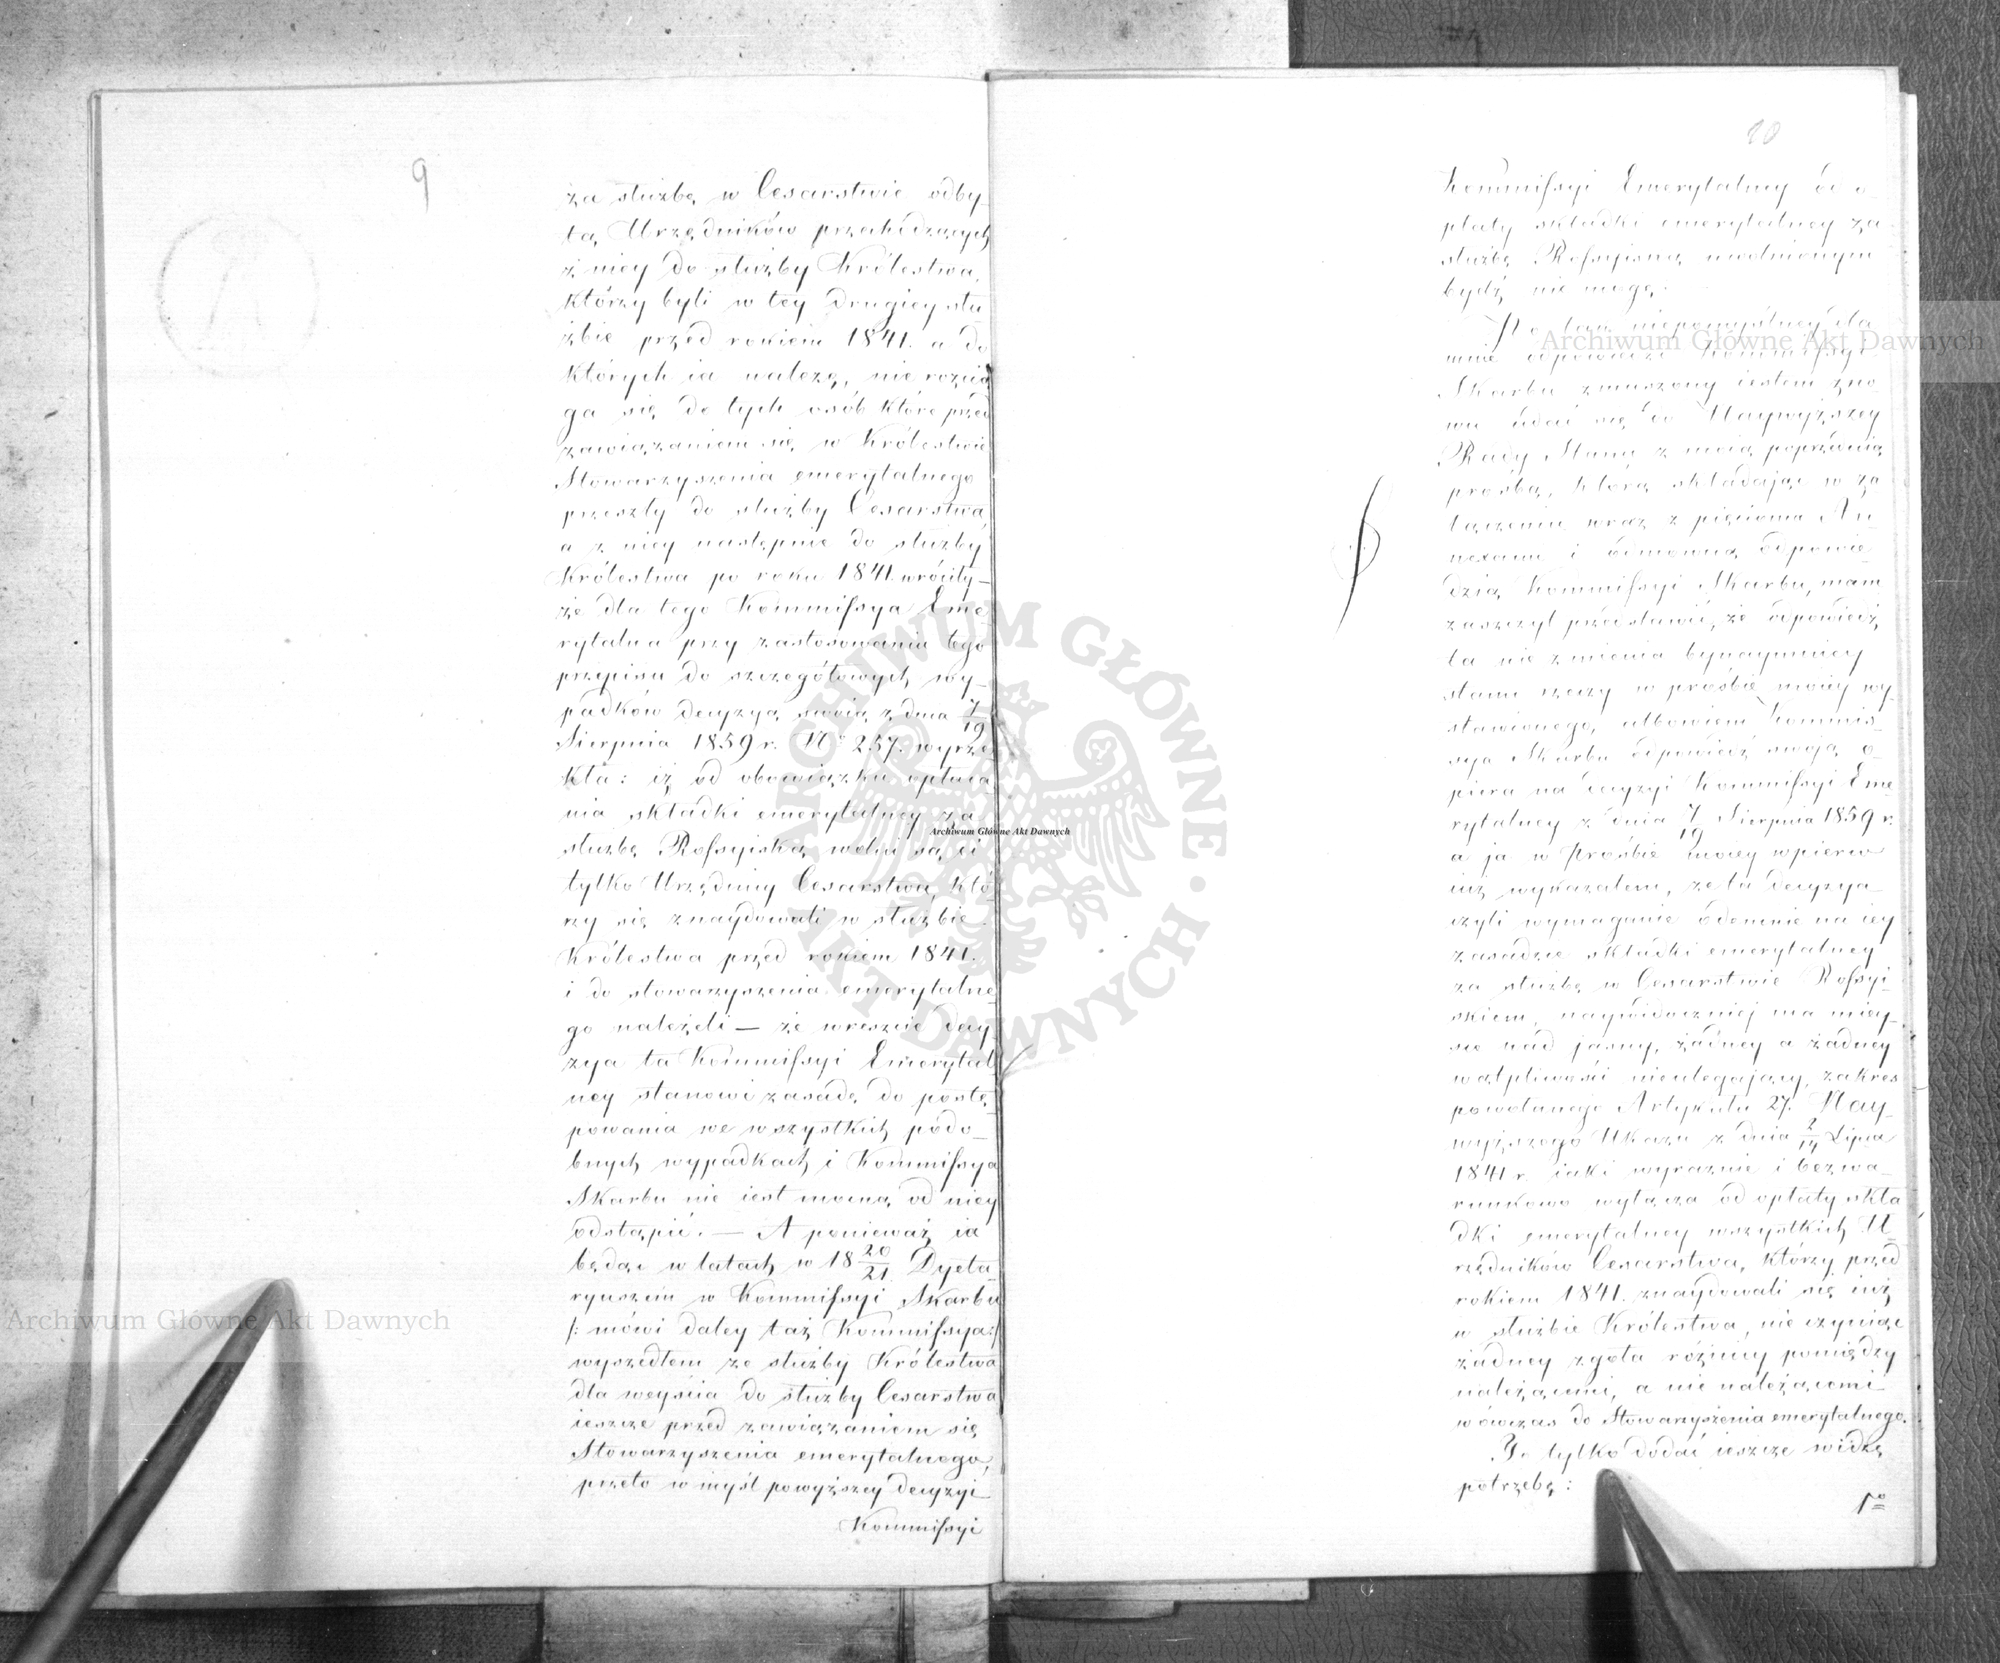 9
za służbę w Cesarstwie odby-
tą Urzędników przechodzących
z niey do służby Królestwa,
którzy byli w tey drugiey słu-
żbie przed rokiem 1841. a do
których ia należę, nie rozcią
ga się do tych osób które przed
zawiązaniem się w Królestwie
Stowarzyszenia emerytalnego
przeszły do służby Cesarstwa,
a z niey następnie do służby
Królestwa po roku 1841. wróciły —
że dla tego Kommissya Eme-
rytalna przy zastosowaniu tego
przepisu do szczegółowych wy-
padków decyzyą swoią z dnia 7/19
Sierpnia 1859 r. No 257. wyrze-
kła: iż od obowiązku opłaca
nia składki emerytalney za
służbę Rossyiską wolni są ci
tylko Urzędnicy Cesarstwa, któ-
rzy się znaydowali w służbie
Królestwa przed rokiem 1841.
i do stowarzyszenia emerytalne
go należeli — że wreszcie decy-
zya ta Kommissyi Emerytal
ney stanowi zasadę do postę-
powania we wszystkich podo-
bnych wypadkach i Kommissya
Skarbu nie iest mocną od niey
odstąpić. — A ponieważ ia
będąc w latach w 18 20/21 Dyeta-
ryuszem w Kommissyi Skarbu
/: mówi daley taż Kommissya :/
wyszedłem ze służby Królestwa
dla weyścia do służby Cesarstwa
ieszcze przed zawiązaniem się
Stowarzyszenia emerytalnego,
przeto w myśl powyższey decyzyi
Kommissyi
10
Kommissyi Emerytalney od o-
płaty składki emerytalney za
służbę Rossyiską uwolnionym
bydź nie mogę.
Po tak niepomyślney dla
mnie odpowiedzi Kommissyi
Skarbu zmuszony iestem zno-
wu udać się do Naywyższey
Rady Stanu z moią poprzednią
prośbą, którą składaiąc w za
łączeniu wraz z pięcioma An-
nexami i odmowną odpowie-
dzią Kommissyi Skarbu, mam
zaszczyt przedstawić, że odpowiedź
ta nie zmienia bynaymniey
stanu rzeczy w prośbie moiey wy-
stawionego, albowiem Kommis-
sya Skarbu odpowiedź swoją o-
piera na decyzyi Kommissyi Eme
rytalney z dnia 7/19 Sierpnia 1859 r.
a ja w prośbie moiey wpierw
iuż wykazałem, że ta decyzya
czyli wymaganie odemnie na iey
zasadzie składki emerytalney
za służbę w Cesarstwie Rossyi-
skiem, naywidoczniej ma miey-
sce nad jasny, żadney a żadney
wątpliwości nieulegający, zakres
powołanego Artykułu 27. Nay-
wyższego Ukazu z dnia 2/14 Lipca
1841 r. iaki wyraźnie i bezwa-
runkowo wyłącza od opłaty skła
dki emerytalney wszystkich U-
rzędników Cesarstwa, którzy przed
rokiem 1841. znaydowali się iuż
w służbie Królestwa, nie czyniąc
żadney zgoła różnicy pomiędzy
należącemi, a nie należącemi
wówczas do Stowarzyszenia emerytalnego.
To tylko dodać ieszcze widzę
potrzebę:
1o
Archiwum Główne Akt Dawnych
Archiwum Główne Akt Dawnych
Archiwum Główne Akt Dawnych
ARCHIWUM GŁÓWNE AKT DAWNYCH